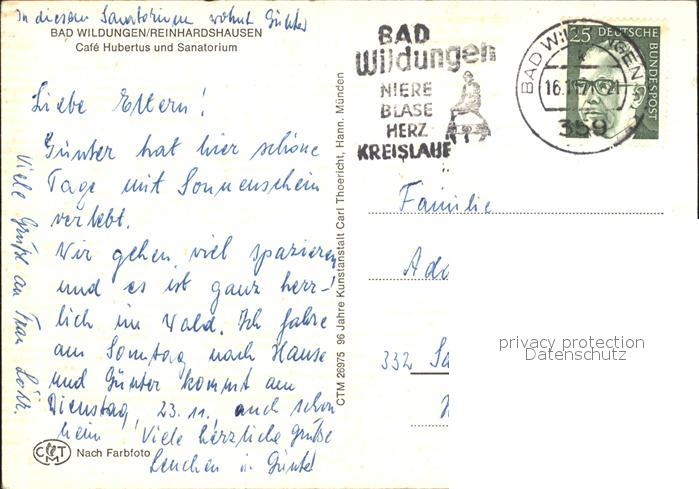 In diesem Sanatorium wohnt Günter
BAD WILDUNGEN/REINHARDSHAUSEN
Café Hubertus und Sanatorium
Liebe Eltern!
Günter hat hier schöne
Tage mit Sonnenschein
verlebt.
Wir gehen viel spazieren
und es ist ganz herr-
lich im Wald. Ich fahre
am Sonntag nach Hause
und Günter kommt am
Dienstag, 23.11. auch schon
heim Viele herzliche Grüße
Lenchen u. Günter
Viele Grüße an Frau
CTM
Nach Farbfoto
CTM 26975 96 Jahre Kunstanstalt Carl Thoericht, Hann. Münden
BAD
Wildungen
NIERE
BLASE
HERZ
KREISLAUF
BAD WILDUNGEN
359
25
DEUTSCHE
BUNDESPOST
Familie
332
privacy protection
Datenschutz